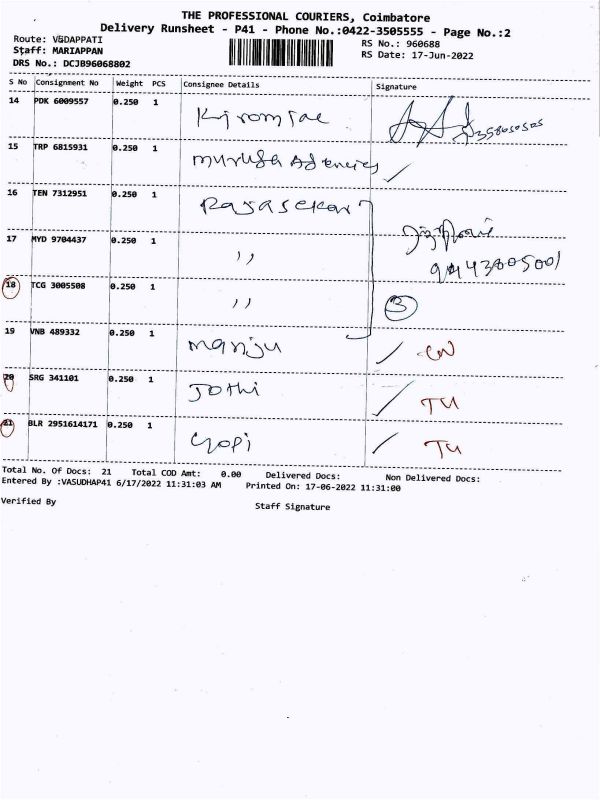 THE PROFESSIONAL COURIERS, Coimbatore
Delivery Runsheet - P41 - Phone No.:0422-3505555 - Page No.:2
Route: VEDAPPATI
RS No.: 960688
Staff: MARIAPPAN
RS Date: 17-Jun-2022
DRS No.: DCJB96068802
S No Consignment No Weight PCS Consignee Details Signature
14 PDK 6009557 0.250 1
15 TRP 6815931 0.250 1 Muruga Agencies
16 TEN 7312951 0.250 1 Rajasekar
17 MYD 9704437 0.250 1 ,,
9443805001
18 TCG 3005508 0.250 1 ,, 3
19 VNB 489332 0.250 1 manju CN
20 SRG 341101 0.250 1 Jothi TU
21 BLR 2951614171 0.250 1 Gopi TU
Total No. Of Docs: 21 Total COD Amt: 0.00 Delivered Docs: Non Delivered Docs:
Entered By :VASUDHAP41 6/17/2022 11:31:03 AM Printed On: 17-06-2022 11:31:00
Verified By Staff Signature